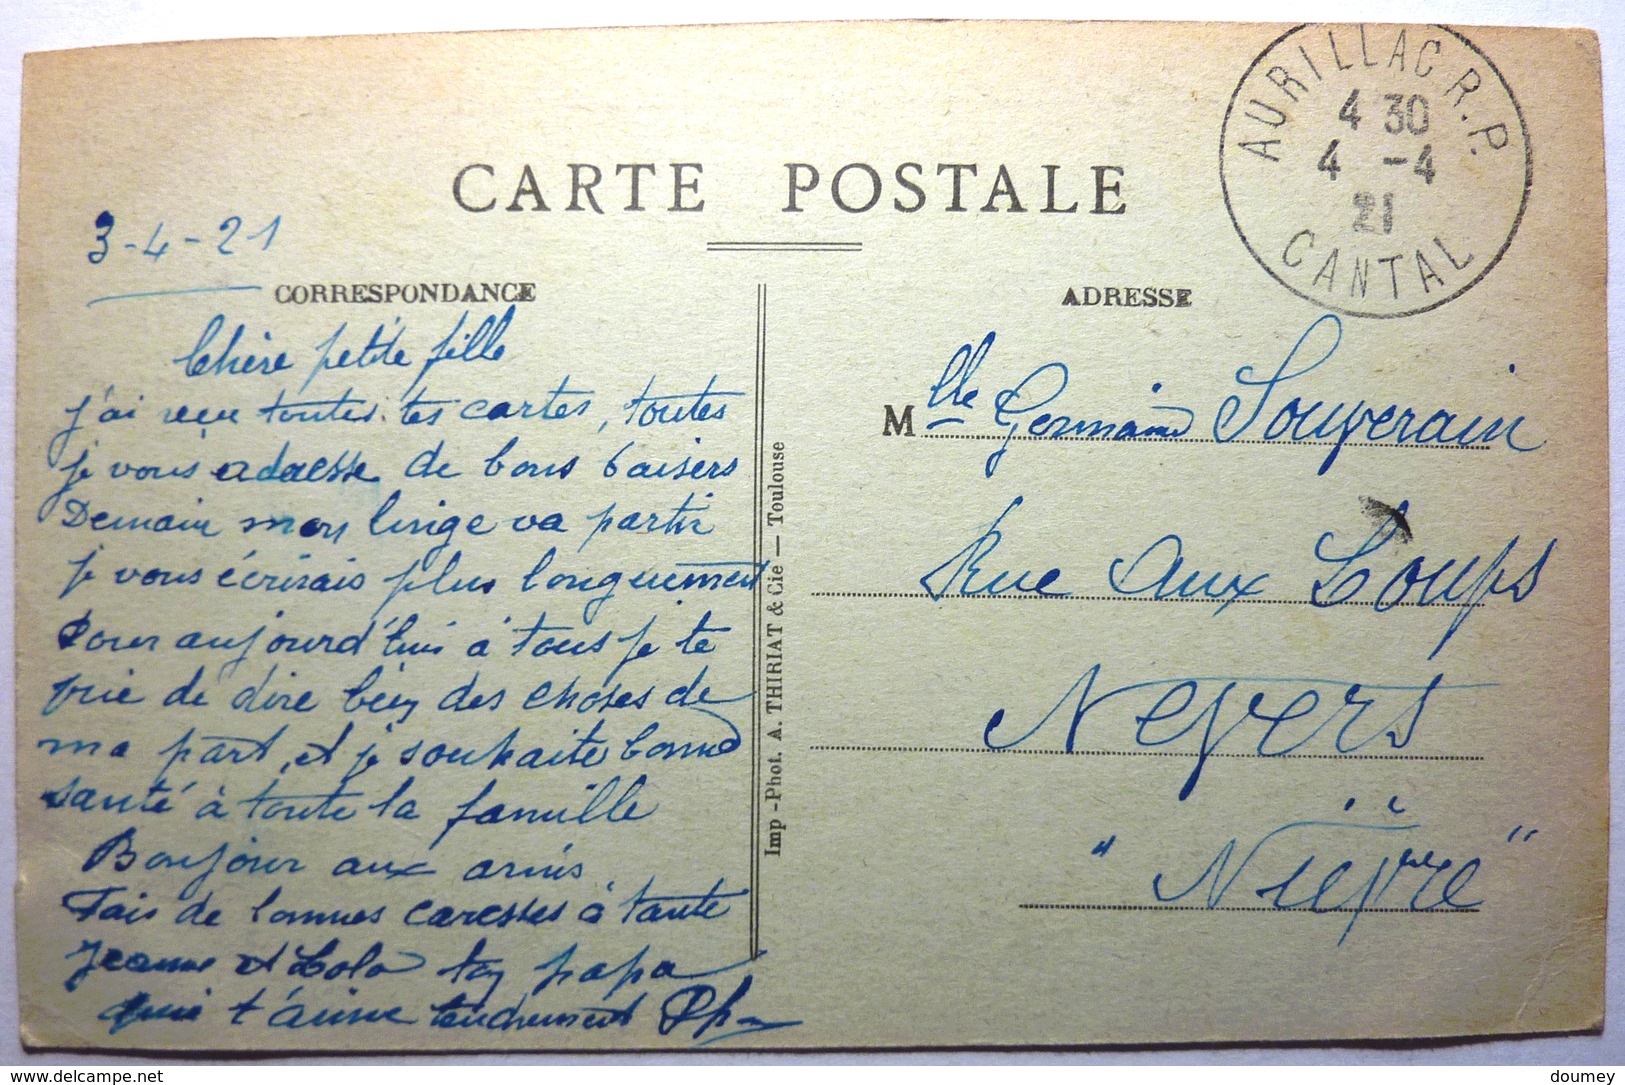 AURILLAC R.P.
4 30
4 -4
21
CANTAL
CARTE POSTALE
3-4-21
CORRESPONDANCE
ADRESSE
Chère petite fille
j'ai reçu toutes tes cartes, toutes
je vous adresse de bons baisers
Demain mon linge va partir
je vous écrirais plus longuement
Pour aujourd'hui à tous je te
prie de dire bien des choses de
ma part, et je souhaite bonne
santé à toute la famille
Bonjour aux amis
Fais de bonnes caresses à tante
Jeanne et Lolo ton papa
qui t'aime tendrement Ph
Imp - Phot. A. THIRIAT & Cie — Toulouse
Mlle Germaine Souverain
Rue aux Loups
Nevers
"Nièvre"
doumey